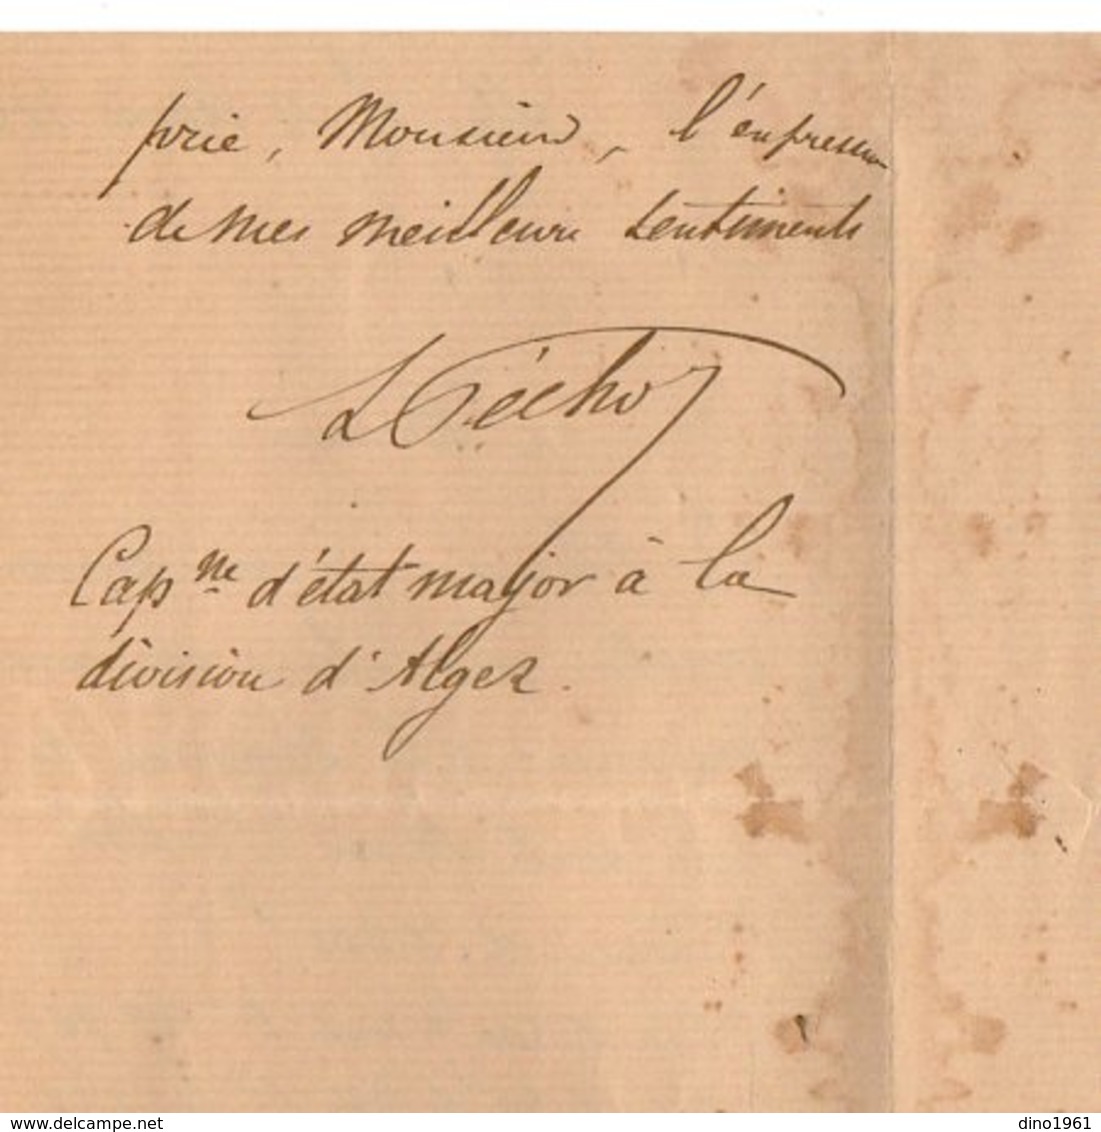 prie, Monsieur, l'expression
de mes meilleurs sentiments
Cap ne d'état major à la
division d'Alger.
delcampe.net
dino1961